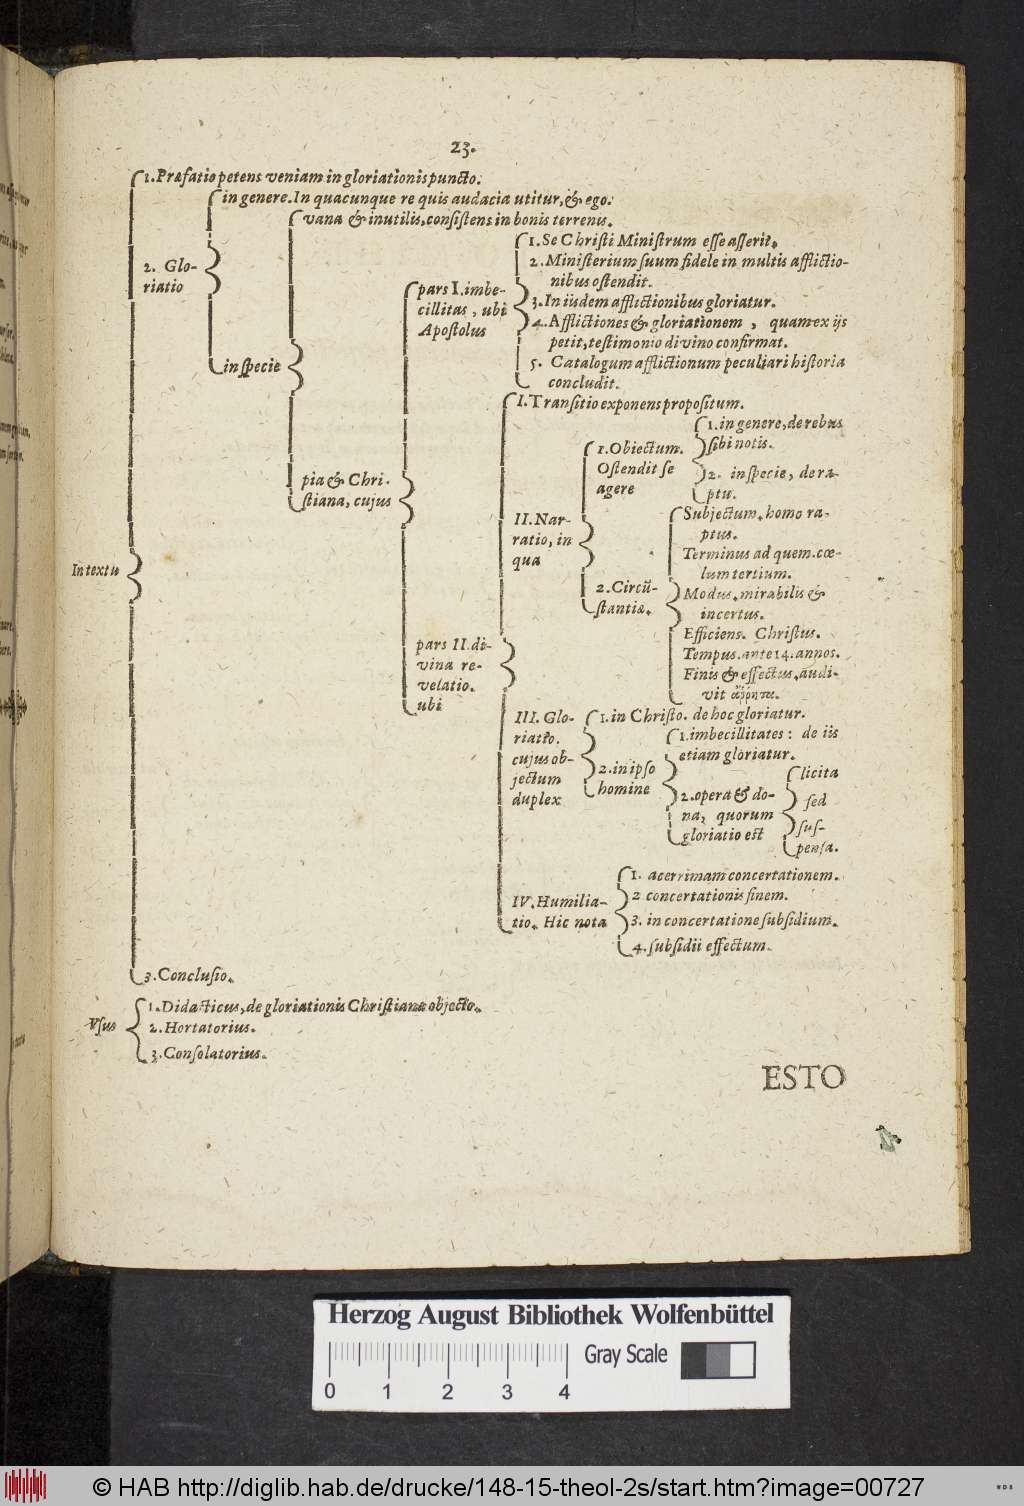 23.
1. Præfatio petens veniam in gloriationis puncto.
in genere. In quacunque re quis audacia utitur, & ego.
vana & inutilis, consistens in bonis terrenis.
2. Glo-
riatio
in specie
pia & Chri-
stiana, cujus
pars I. imbe-
cillitas, ubi
Apostolus
1. Se Christi Ministrum esse asserit.
2. Ministerium suum fidele in multis afflictio-
nibus ostendit.
3. In iisdem afflictionibus gloriatur.
4. Afflictiones & gloriationem, quam ex ijs
petit, testimonio divino confirmat.
5. Catalogum afflictionum peculiari historia
concludit.
In textu
pars II. di-
vina re-
velatio.
ubi
I. Transitio exponens propositum.
II. Nar-
ratio, in
qua
1. Obiectum.
Ostendit se
agere
1. in genere, de rebus
sibi notis.
2. in specie, de ra-
ptu.
2. Circũ-
stantiæ.
Subjectum. homo ra-
ptus.
Terminus ad quem. cœ-
lum tertium.
Modus. mirabilis &
incertus.
Efficiens. Christus.
Tempus. ante 14. annos.
Finis & effectus. audi-
vit ἄῤῥητα.
III. Glo-
riatio.
cujus ob-
jectum
duplex
1. in Christo. de hoc gloriatur.
2. in ipso
homine
1. imbecillitates: de iis
etiam gloriatur.
2. opera & do-
na, quorum
gloriatio est
licita
sed
sus-
pensa.
IV. Humilia-
tio. Hic nota
1. acerrimam concertationem.
2 concertationis finem.
3. in concertatione subsidium.
4. subsidii effectum.
3. Conclusio.
Vsus
1. Didacticus, de gloriationis Christianæ objecto.
2. Hortatorius.
3. Consolatorius.
ESTO
Herzog August Bibliothek Wolfenbüttel
Gray Scale
0 1 2 3 4
© HAB http://diglib.hab.de/drucke/148-15-theol-2s/start.htm?image=00727